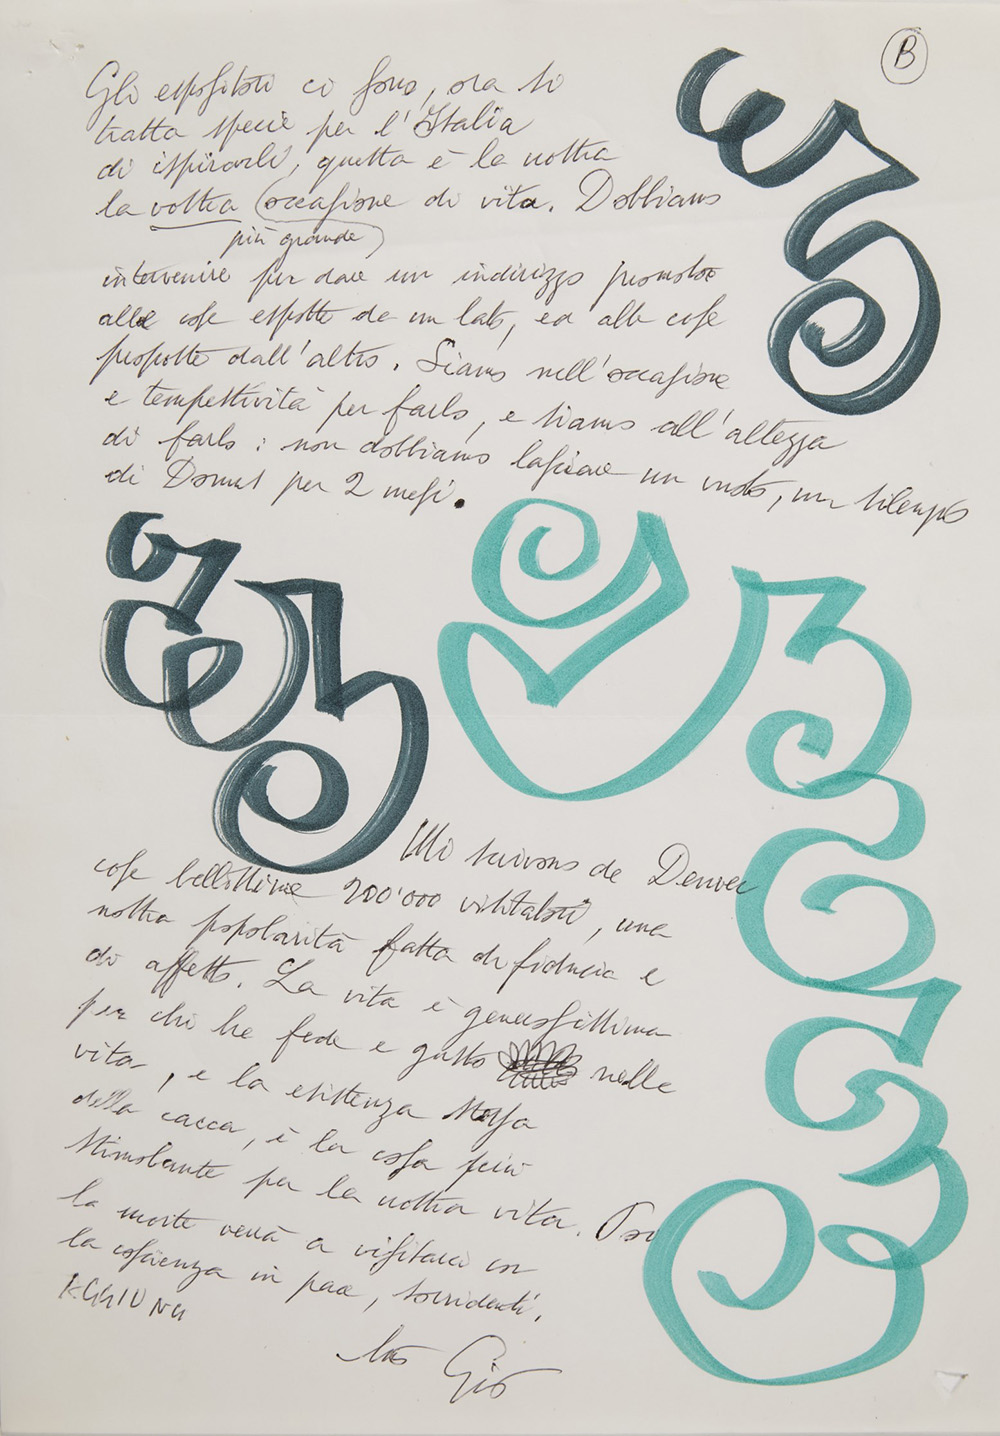 B
Gli espositori ci sono, ora si
tratta specie per l'Italia
di ispirarli, questa è la nostra
la vostra (occasione di vita. Dobbiamo
più grande)
intervenire per dare un indirizzo promotore
alle cose esposte da un lato, ed alle cose
proposte dall'altro. Siamo nell'occasione
e tempestività per farlo, e siamo all'altezza
di farlo: non dobbiamo lasciare un vuoto, un silenzio
di Domus per 2 mesi.
Mi scrivono da Denver
cose bellissime 200'000 visitatori, una
nostra popolarità fatta di fiducia e
di affetto. La vita è generosissima
per chi ha fede e gusto nella
vita, e la esistenza stessa
della cacca, è la cosa più
stimolante per la nostra vita. Poi
la morte verrà a visitarci con
la coscienza in pace, sorridenti.
tuo Gio